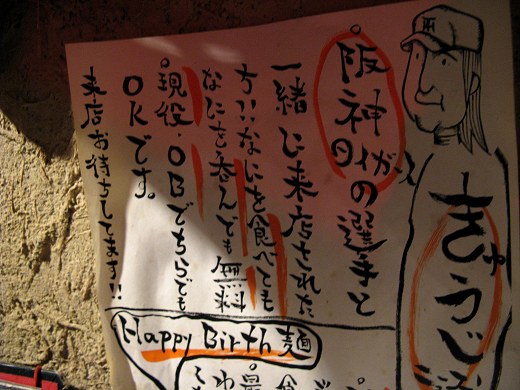 きゅうじ
阪神タイガースの選手と
一緒に来店された
方!!なにを食べても
なにを呑んでも無料
現役・OBどちらでも
OKです。
来店お待ちしてます!!
Happy Birth麺